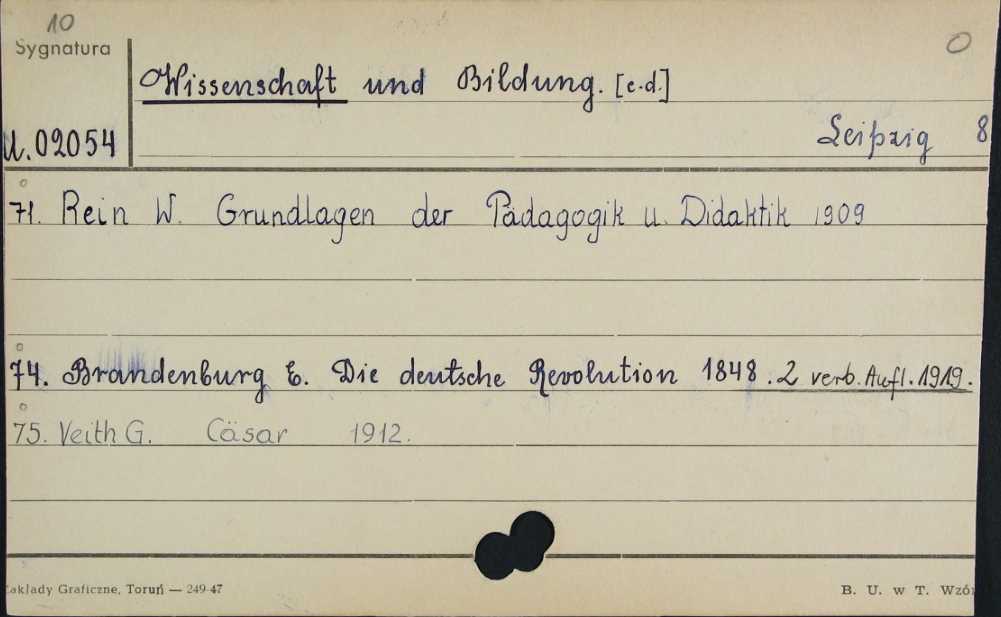 10
Sygnatura
Wissenschaft und Bildung. [c.d.]
U.02054
Leipzig 8
71. Rein W. Grundlagen der Pädagogik u. Didaktik 1909
74. Brandenburg E. Die deutsche Revolution 1848. 2 verb. Aufl. 1919.
75. Veith G. Cäsar 1912.
Zakłady Graficzne, Toruń — 249-47
B. U. w T. Wzór